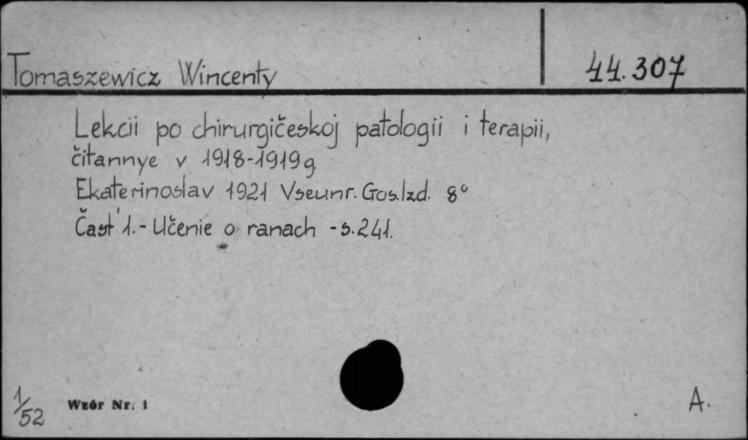 Tomaszewicz Wincenty
44.307
Lekcii po chirurgičeskoj patologii i terapii,
čitannye v 1918-1919 g
Ekaterinoslav 1921 Vseunr. Gos.Izd. 8°
Čast' 1.- Učenie o ranach - s.241.
1/52
Wzór Nr. 1
A.